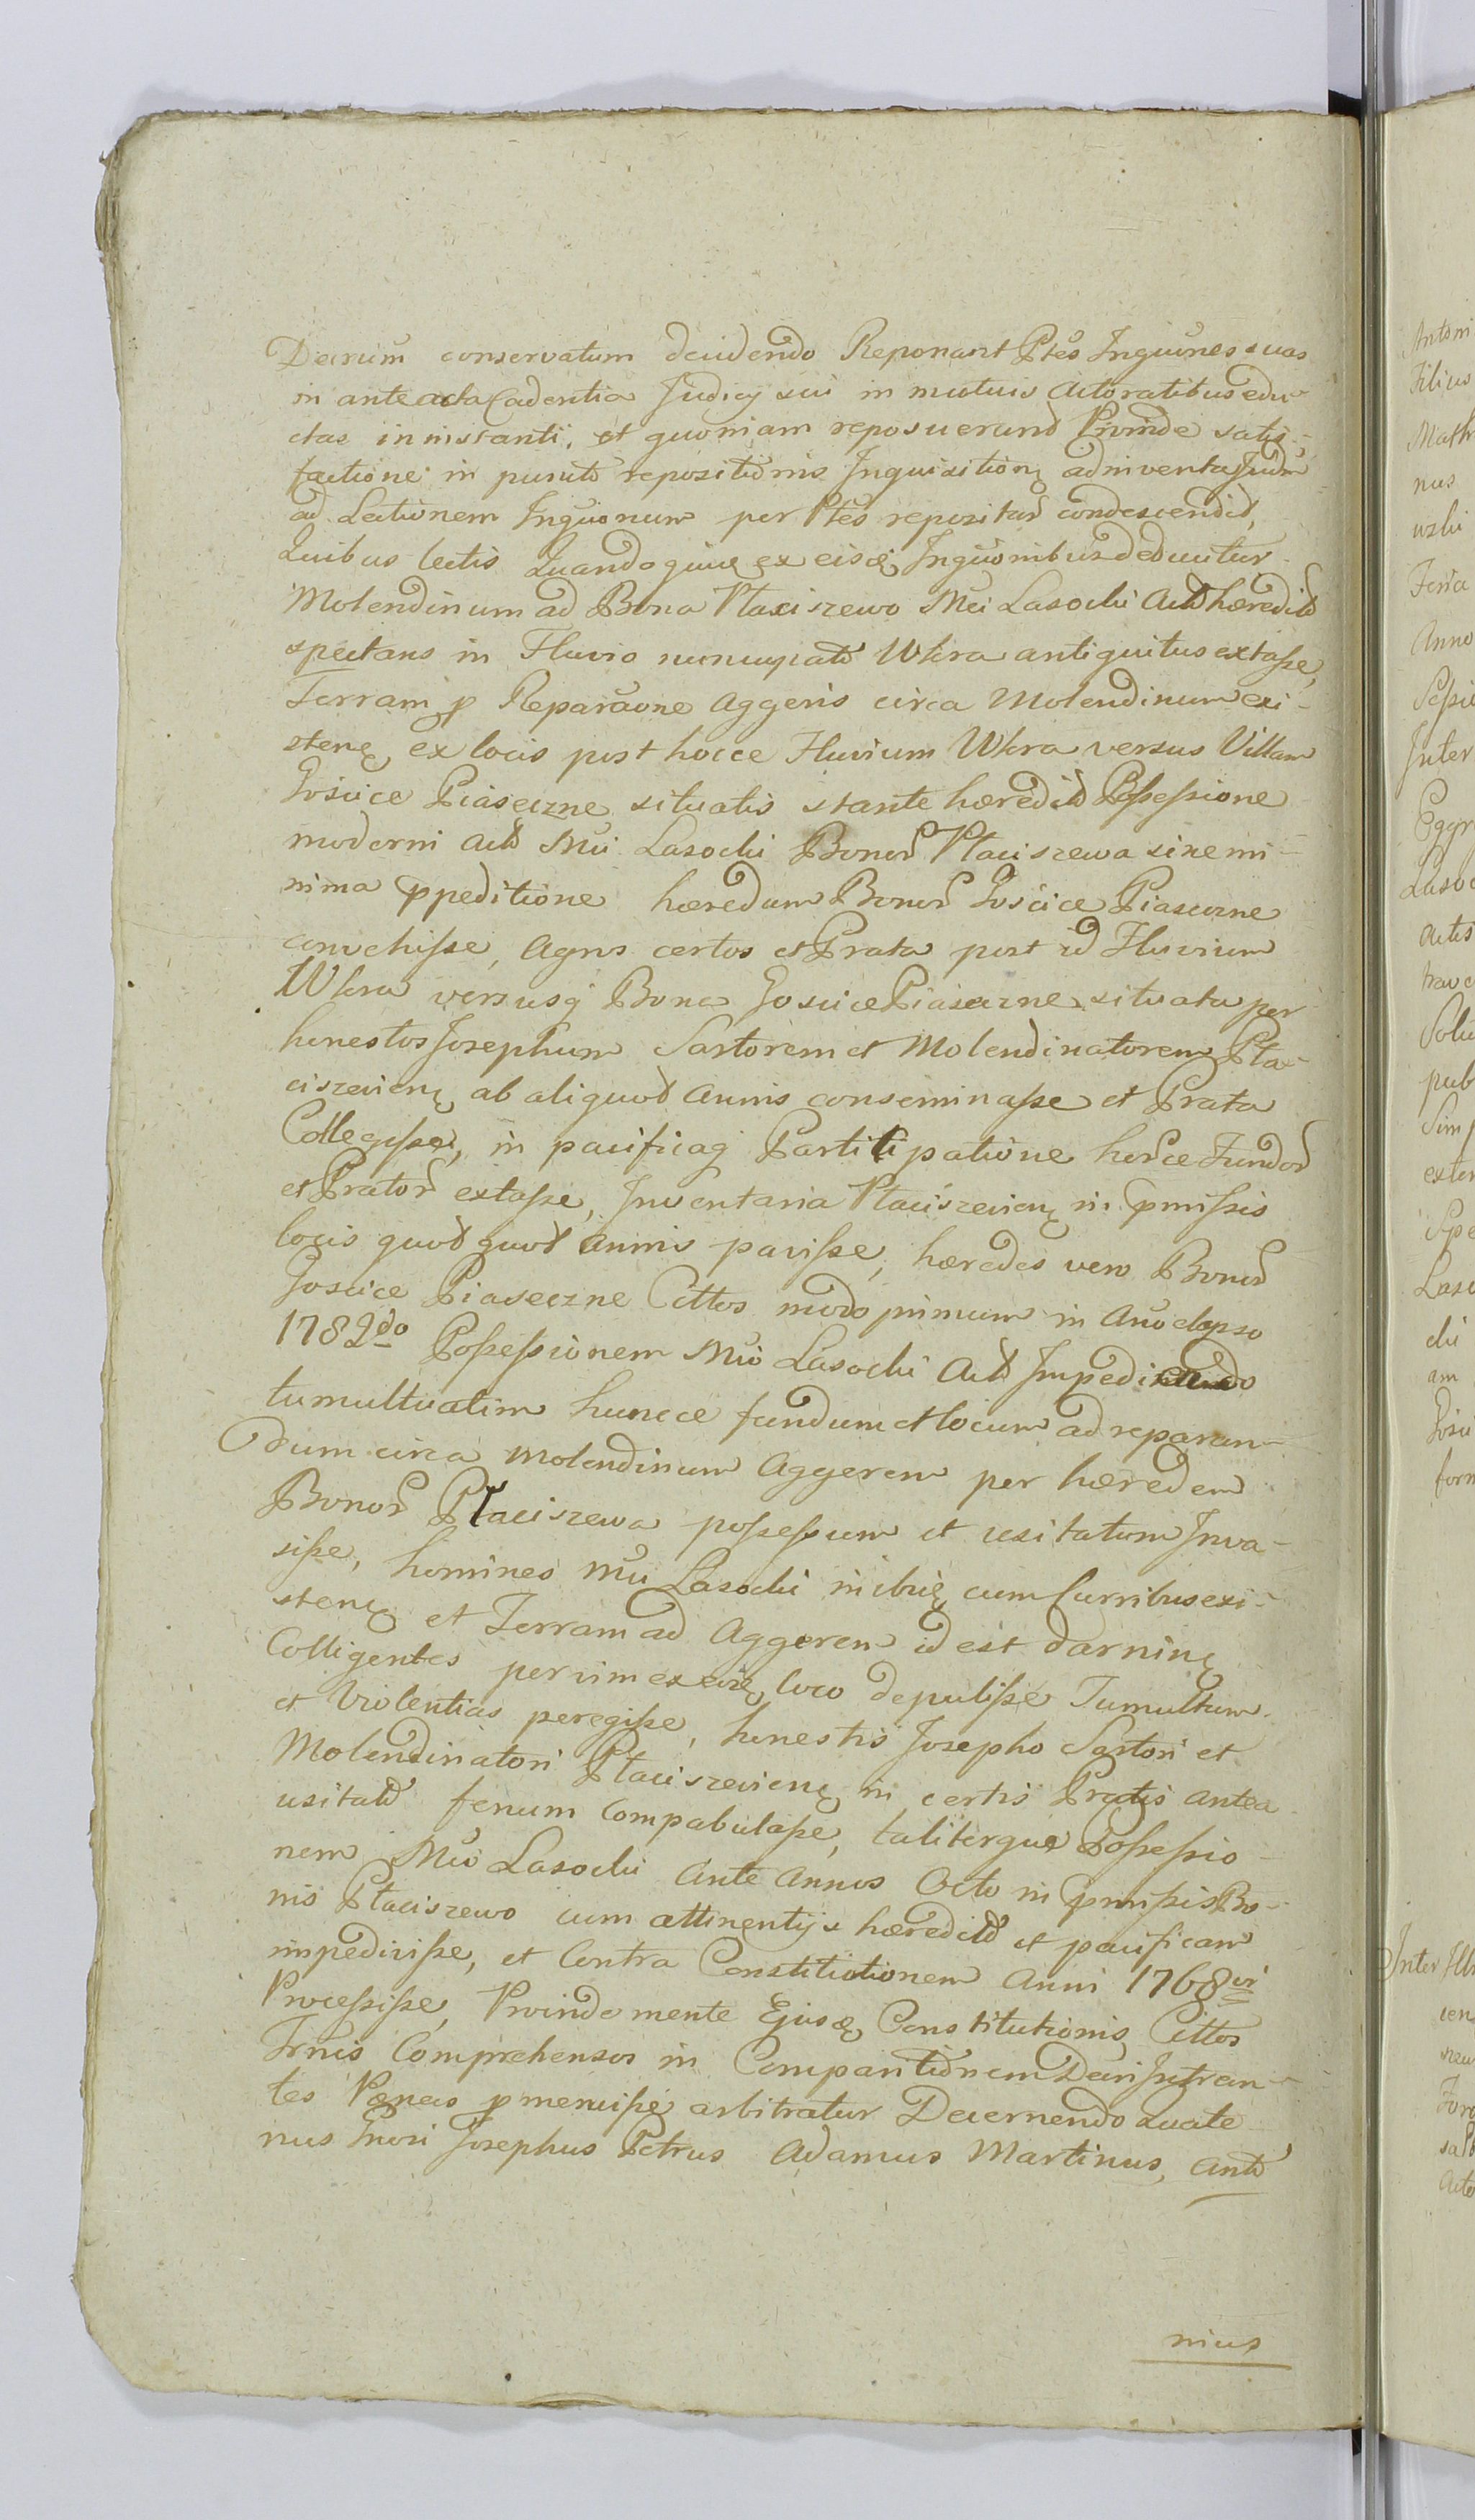 Decrum conservatum decidendo Reponant Ptes Inquiones suas
in anteacta Cadentia Judicy sui in mutuis Actoratibus edu-
ctas in instanti, et quoniam reposuerund Proinde satis-
factione in puncto repositionis Inquisitionu adinventa Judm
ad Lectionem Inquionum per Ptes repositar condescendid,
Quibus lectis Quandoquidem ex eisde Inquionibus deducitur
Molendinum ad Bona Placiszewo Mci Lasocki Act hæredit
spectans in Fluvio nuncupato Wkra antiquitus extaße,
Terram p Reparaone Aggeris circa Molendinum exi-
sten ex locis post hocce Fluvium Wkra versus Villam
Gościce Piaseczne situatis stante hæredit Poßeßione
moderni Act Mci Lasocki Bonor Placiszewa sine mi-
nima ppeditione hæredum Bonor Gościce Piaseczne
convehiße, Agros certos et Prata post id Fluvium
Wkra versusq Bona Goscice Piaseczne situata per
honestos Josephum Sartorem et Molendinatorem Pla-
ciszevien ab aliquod annis conseminaße et Prata
Collegiße, in pacificaq Partitipatione horce Fundor
et Prator extaße, Inventaria Placiszevien in pmißis
locis quod quod annis paviße, hæredes vero Bonor
Goscice Piaseczne Cittos modo primum in Ano elapso
1782do Poßeßionem Mci Lasocki Act Impediendo
tumultuatim huncce fundum et locum ad reparan-
dum circa Molendinum Aggerem per hæredem
Bonor Placiszewa poßeßum et usitatum Inva-
siße, homines Mci Lasocki inibiq cum Curribus exi-
sten et Terram ad Aggerem id est darnin
Colligentes per vim ex eode loco depuliße Tumultum
et Violentias peregiße, honestis Josepho Sartori et
Molendinatori Placiszevien in certis Pratis antea
usitat fenum Compabulaße, taliterque Poßeßio-
nem Mci Lasocki Ante Annos Octo in pmißis Bo-
nis Placiszewo cum attinentijs hæredit et pacificam
impediviße, et Contra Constitutionem Anni 1768vi
Proceßiße, Proinde mente Ejusde Constitutionis Cittos
Trnis Comprehensos in Comparitionem Decri Intran-
tes Pænas pmeruiße arbitratur Decernendo Quate
nus Gnosi Josephus Petrus Adamus Martinus, Anto
nius